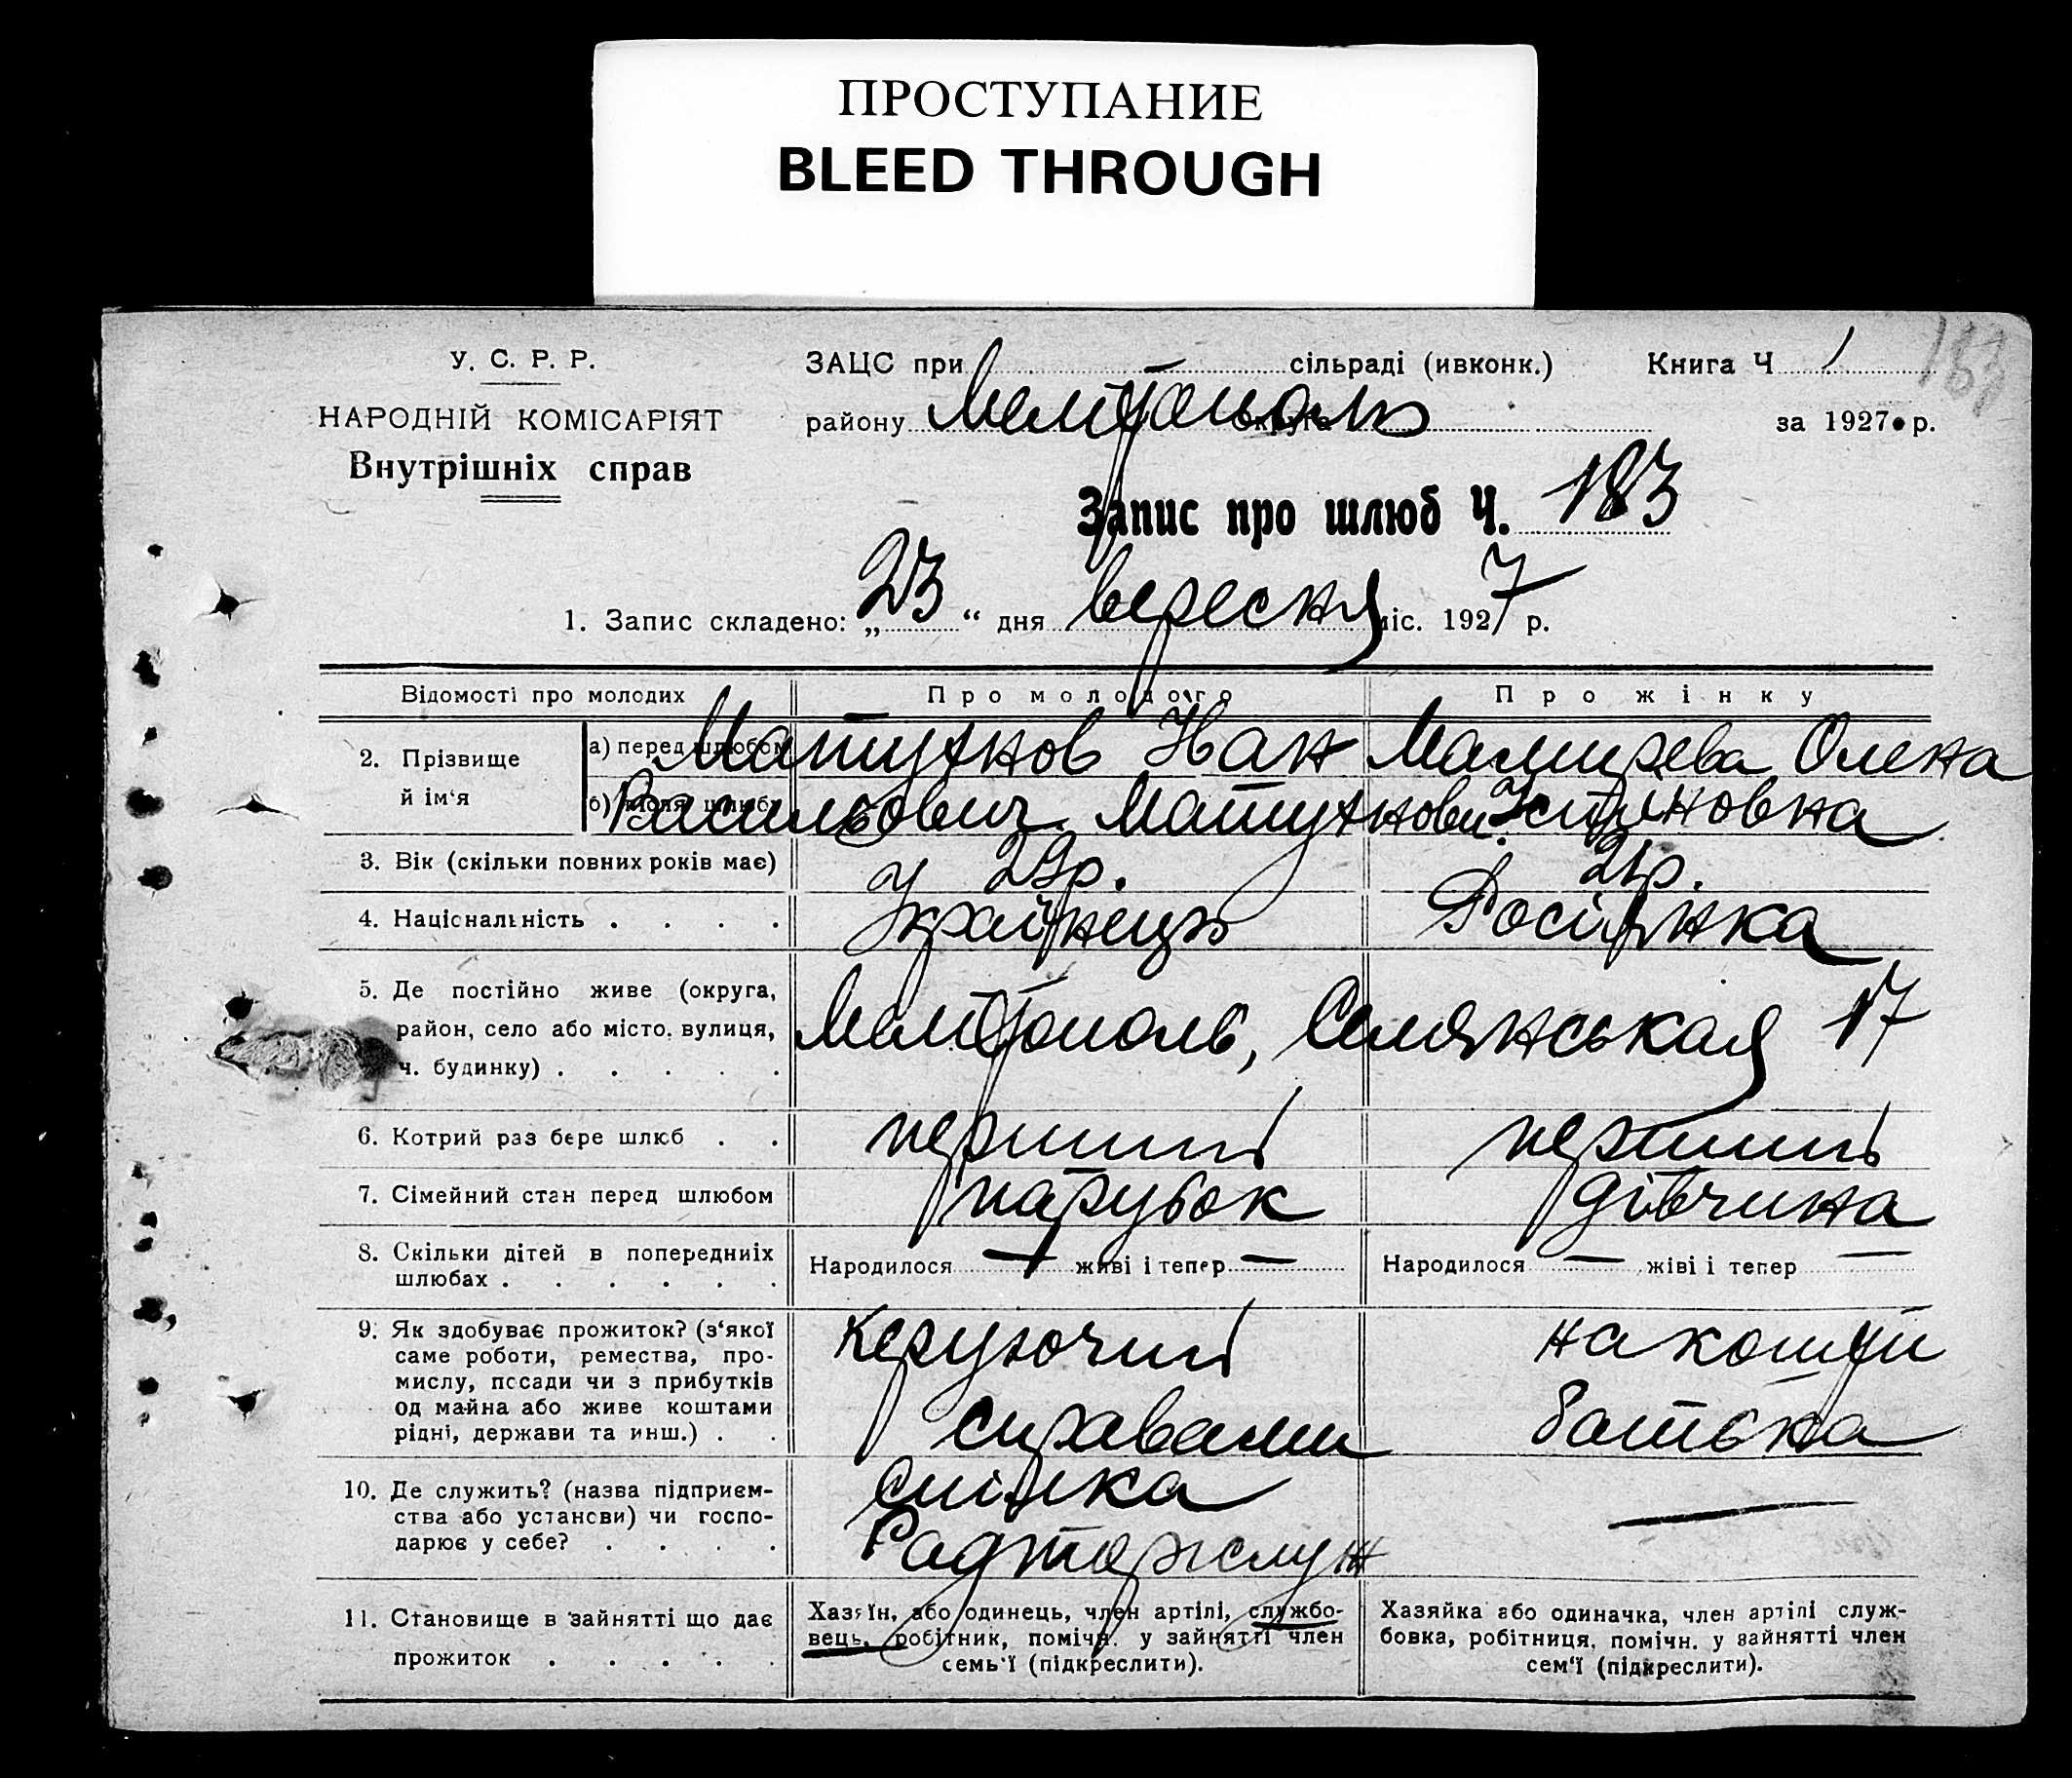 ПРОСТУПАНИЕ
BLEED THROUGH
У. С. Р. Р.
НАРОДНІЙ КОМІСАРІЯТ
Внутрішніх справ
ЗАЦС при сільраді (ивконк.) Книга Ч 1
183
району Мелітополь округа за 1927 р.
Запис про шлюб Ч. 183
1. Запис складено: „23“ дня вересня міс. 1927 р.
Відомості про молодих Про молодого Про жінку
2. Прізвище й ім‘я
а) перед шлюбом Матухнов Іван
б) після шлюбу Васильович Матухнови
Олена
3. Вік (скільки повних років має) 29р. 21р.
4. Національність . . . . Українець Росіянка
5. Де постійно живе (округа,
район, село або місто, вулиця,
ч. будинку) . . . . .
Мелітополь, 17
6. Котрий раз бере шлюб . . перший перший
7. Сімейний стан перед шлюбом парубок дівчина
8. Скільки дітей в попередниіх
шлюбах . . . . . .
Народилося — живі і тепер —
Народилося — жіві і тепер —
9. Як здобуває прожиток? (з‘якої
саме роботи, ремества, про-
мислу, посади чи з прибутків
од майна або живе коштами
рідні, держави та инш.) . .
керуючий
справами
на кошти
батька
10. Де служить? (назва підприєм-
ства або установи) чи госпо-
дарює у себе? . . . .
Спілка
Радторгслуж
—
11. Становище в зайнятті що дає
прожиток . . . . .
Хазяїн, або одинець, член артілі, службо-
вець, робітник, помічн. у зайнятті член
семь‘ї (підкреслити).
Хазяйка або одиначка, член артілі служ-
бовка, робітниця, помічн. у зайнятті член
сем‘ї (підкреслити).